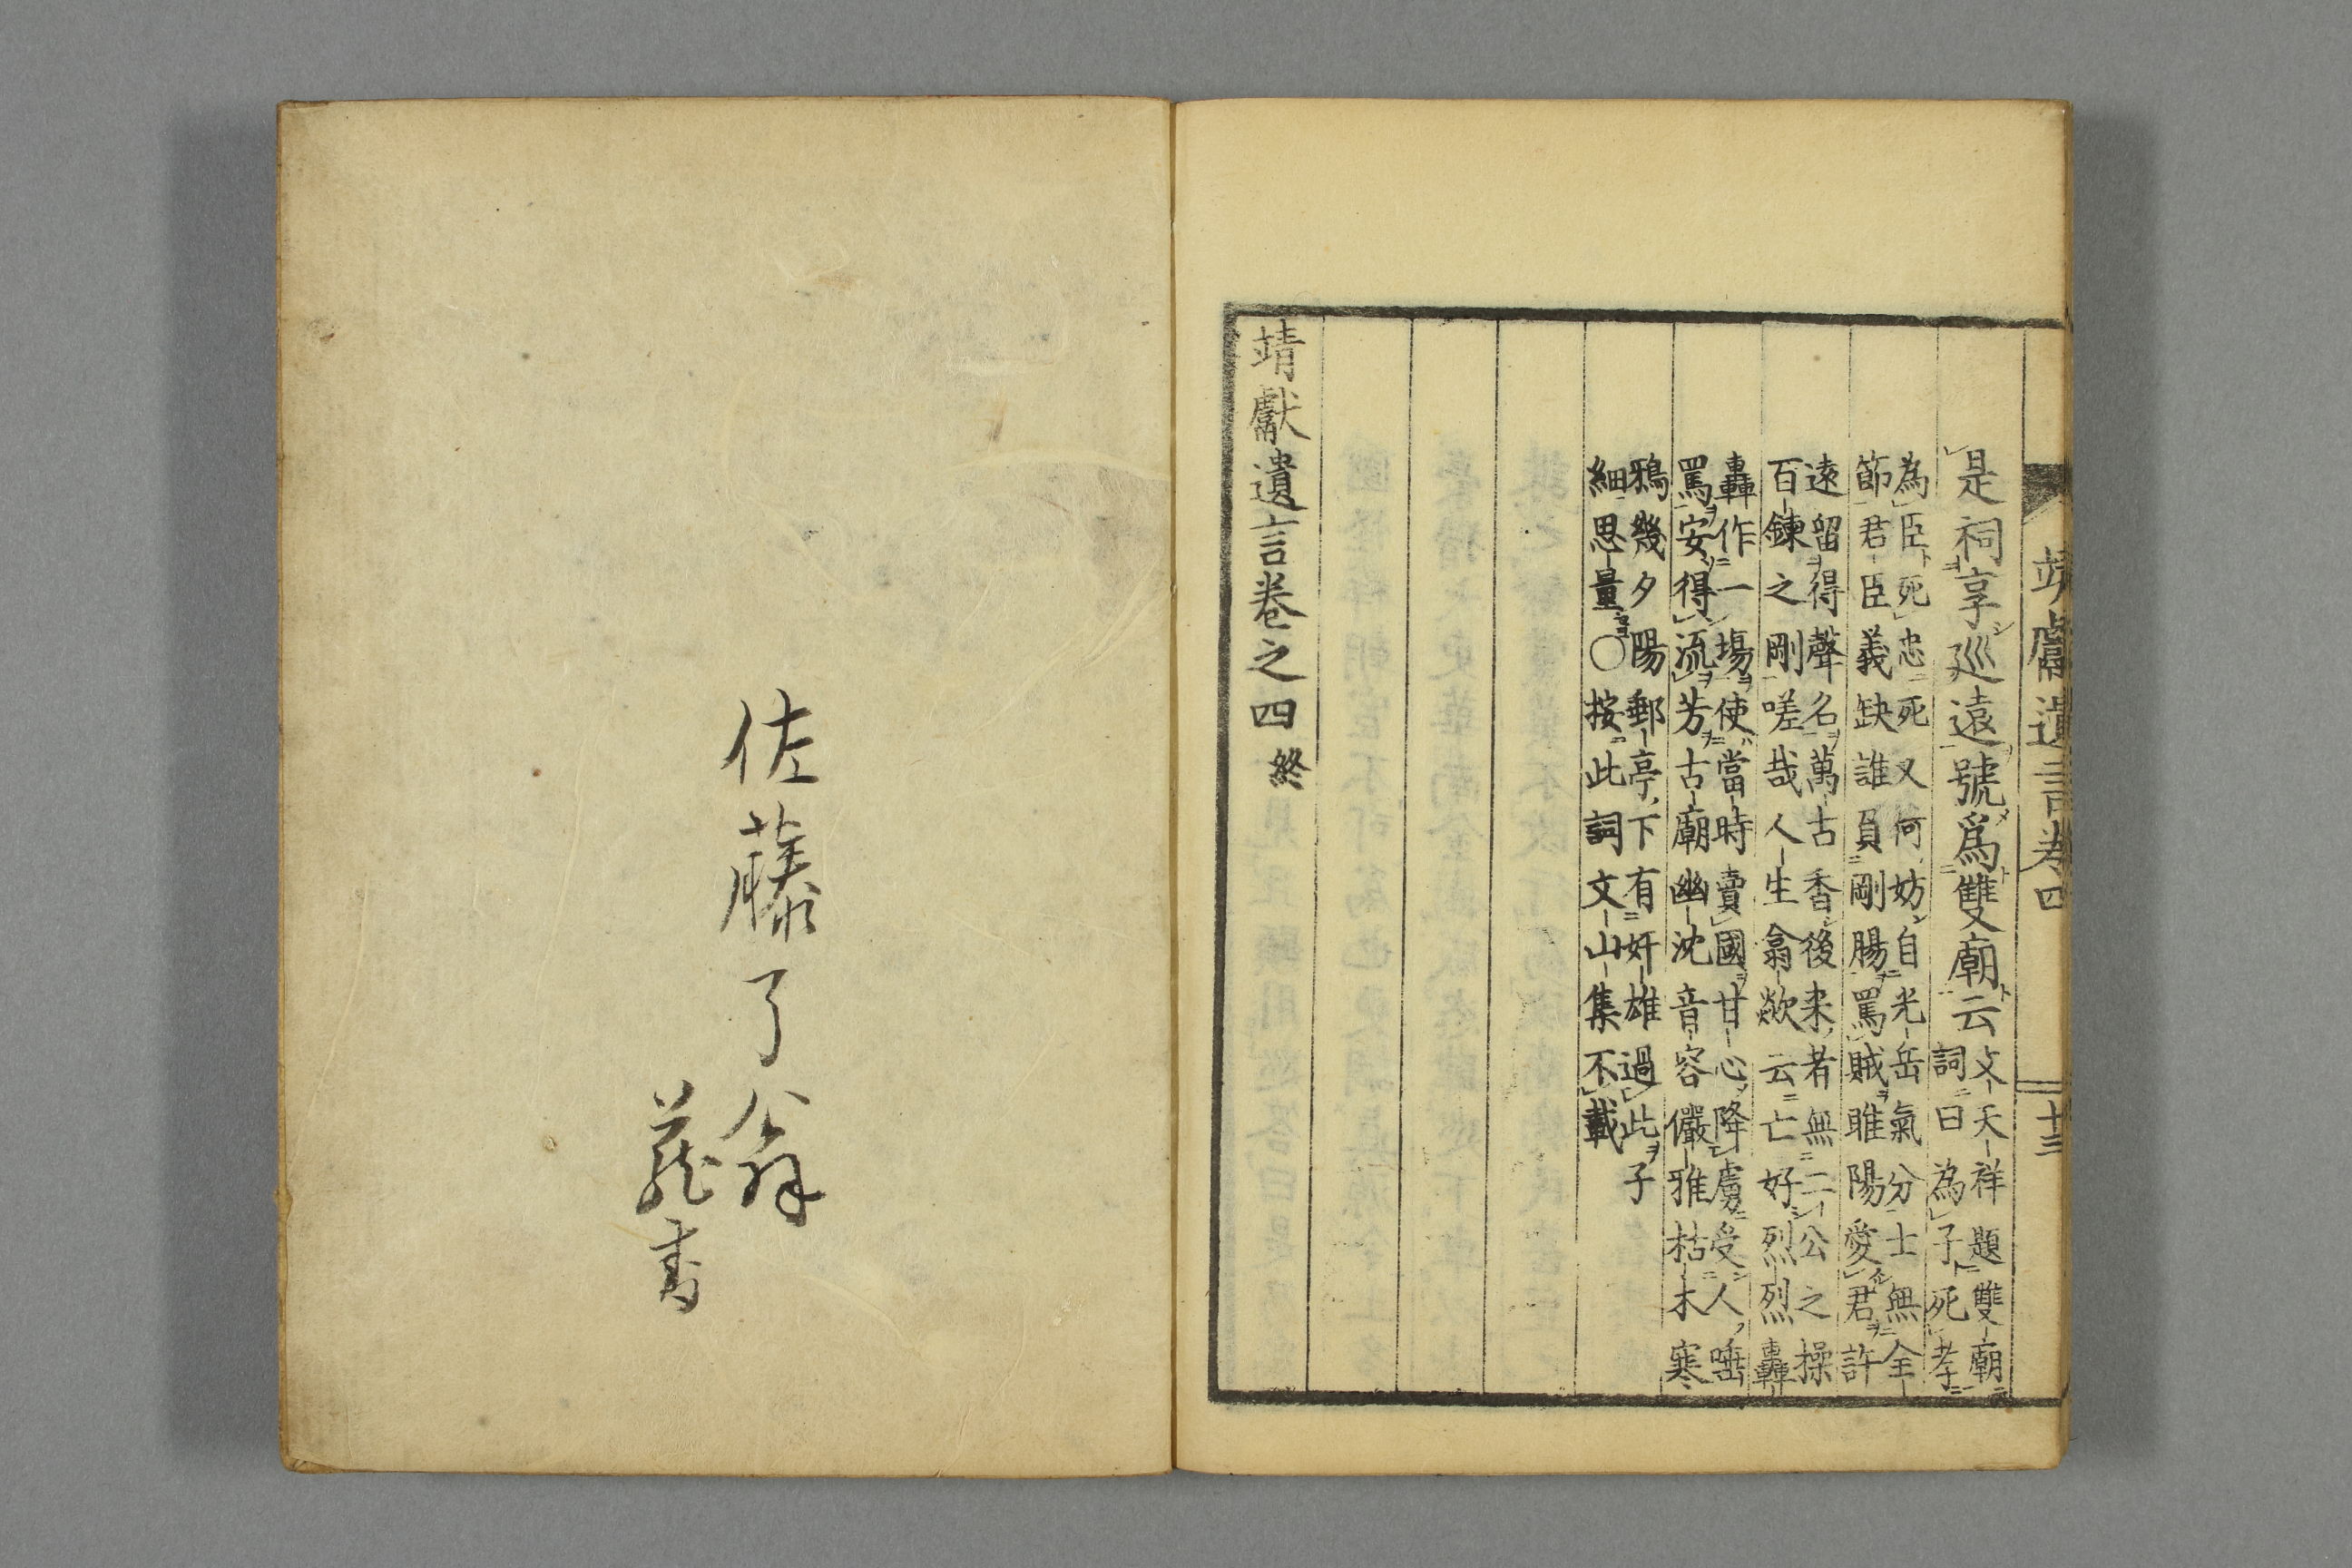 靖獻遺言卷四 十三
是祠享巡遠號爲雙廟云
文天祥題雙廟
詞曰為子死孝
為臣死忠死又何妨自光岳氣分士無全
節君臣義缺誰負剛腸罵賊睢陽愛君許
遠留得聲名萬古香後来者無二公之操
百鍊之剛嗟哉人生翕歘云亡好烈烈轟
轟作一場使當時賣國甘心降虜受人唾
罵安得流芳古廟幽沈音容儼雅枯木寒
鴉幾夕陽郵亭下有奸雄過此子
細思量〇按此詞文山集不載
靖獻遺言卷之四終
佐藤了翁
蔵書